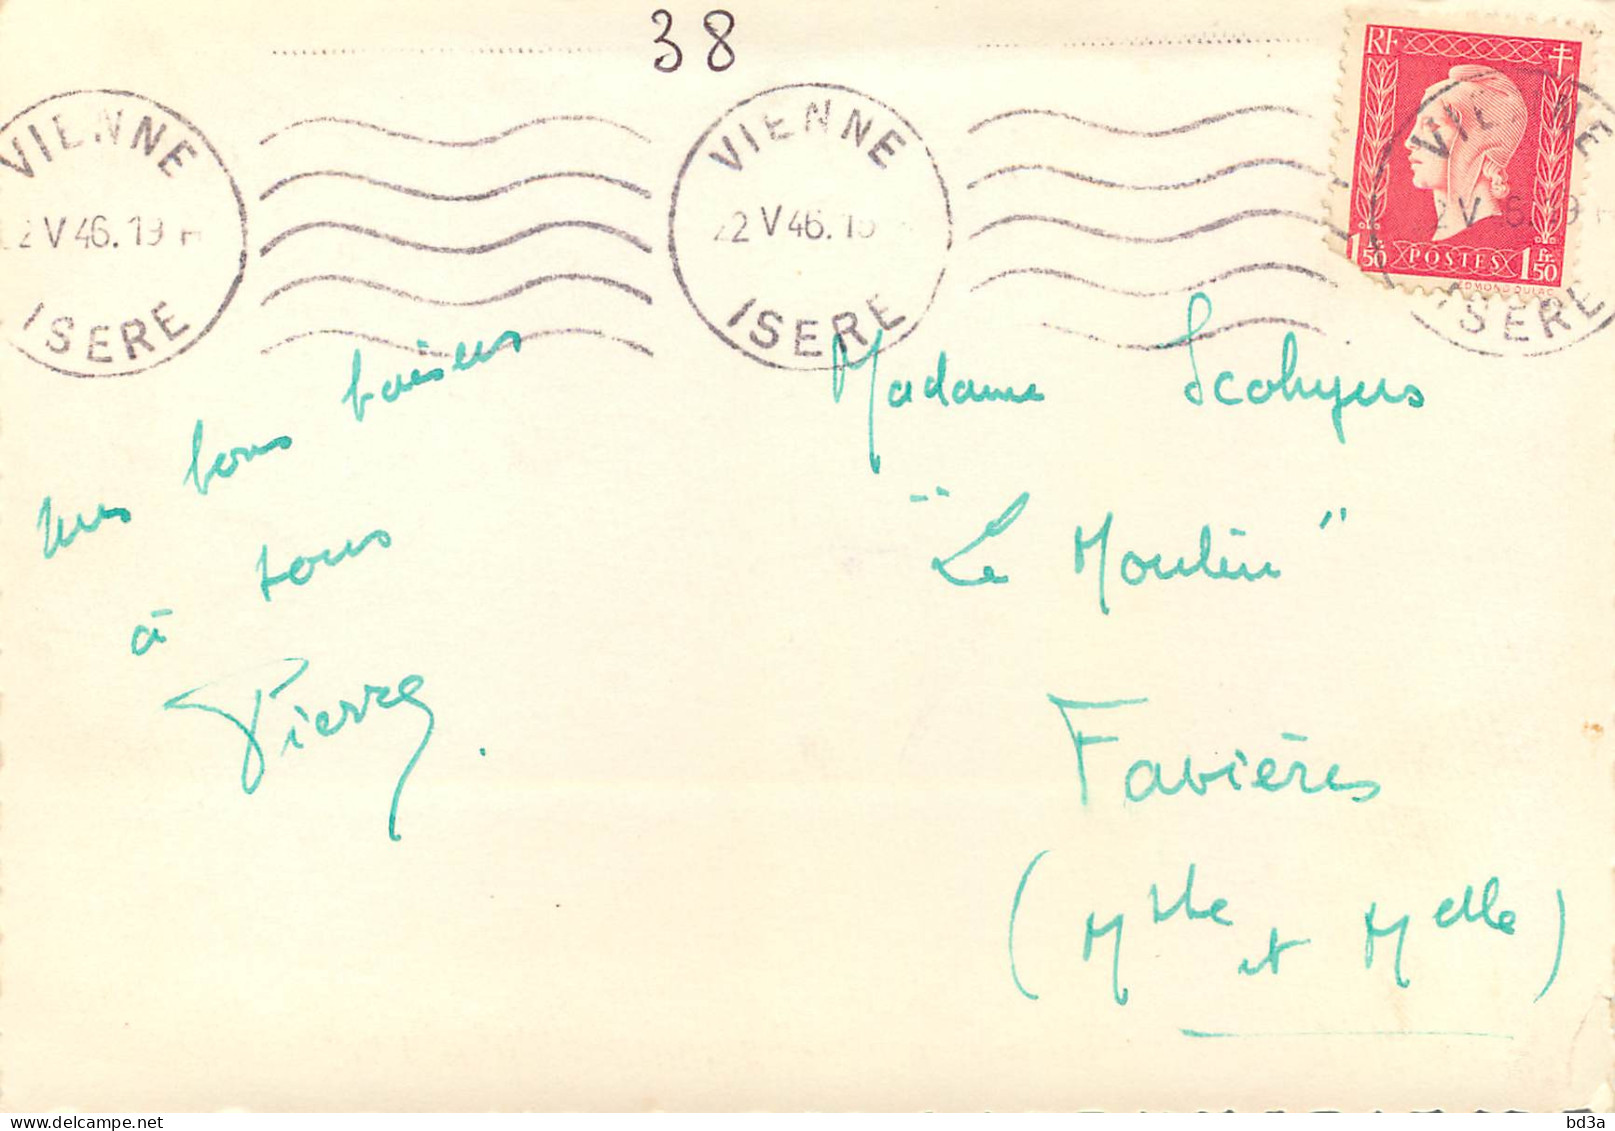 38
VIENNE
22 V 46. 19 H
ISERE
VIENNE
22 V 46. 19
ISERE
RF
1 Fr 50
POSTES
1 Fr 50
EDMOND DULAC
VIENNE
2 V 46. 19 H
ISERE
mes bons baisers
à tous
Pierre.
Madame Scohyers
"Le Moulin"
Favières
(Mthe et Melle)
bd3a